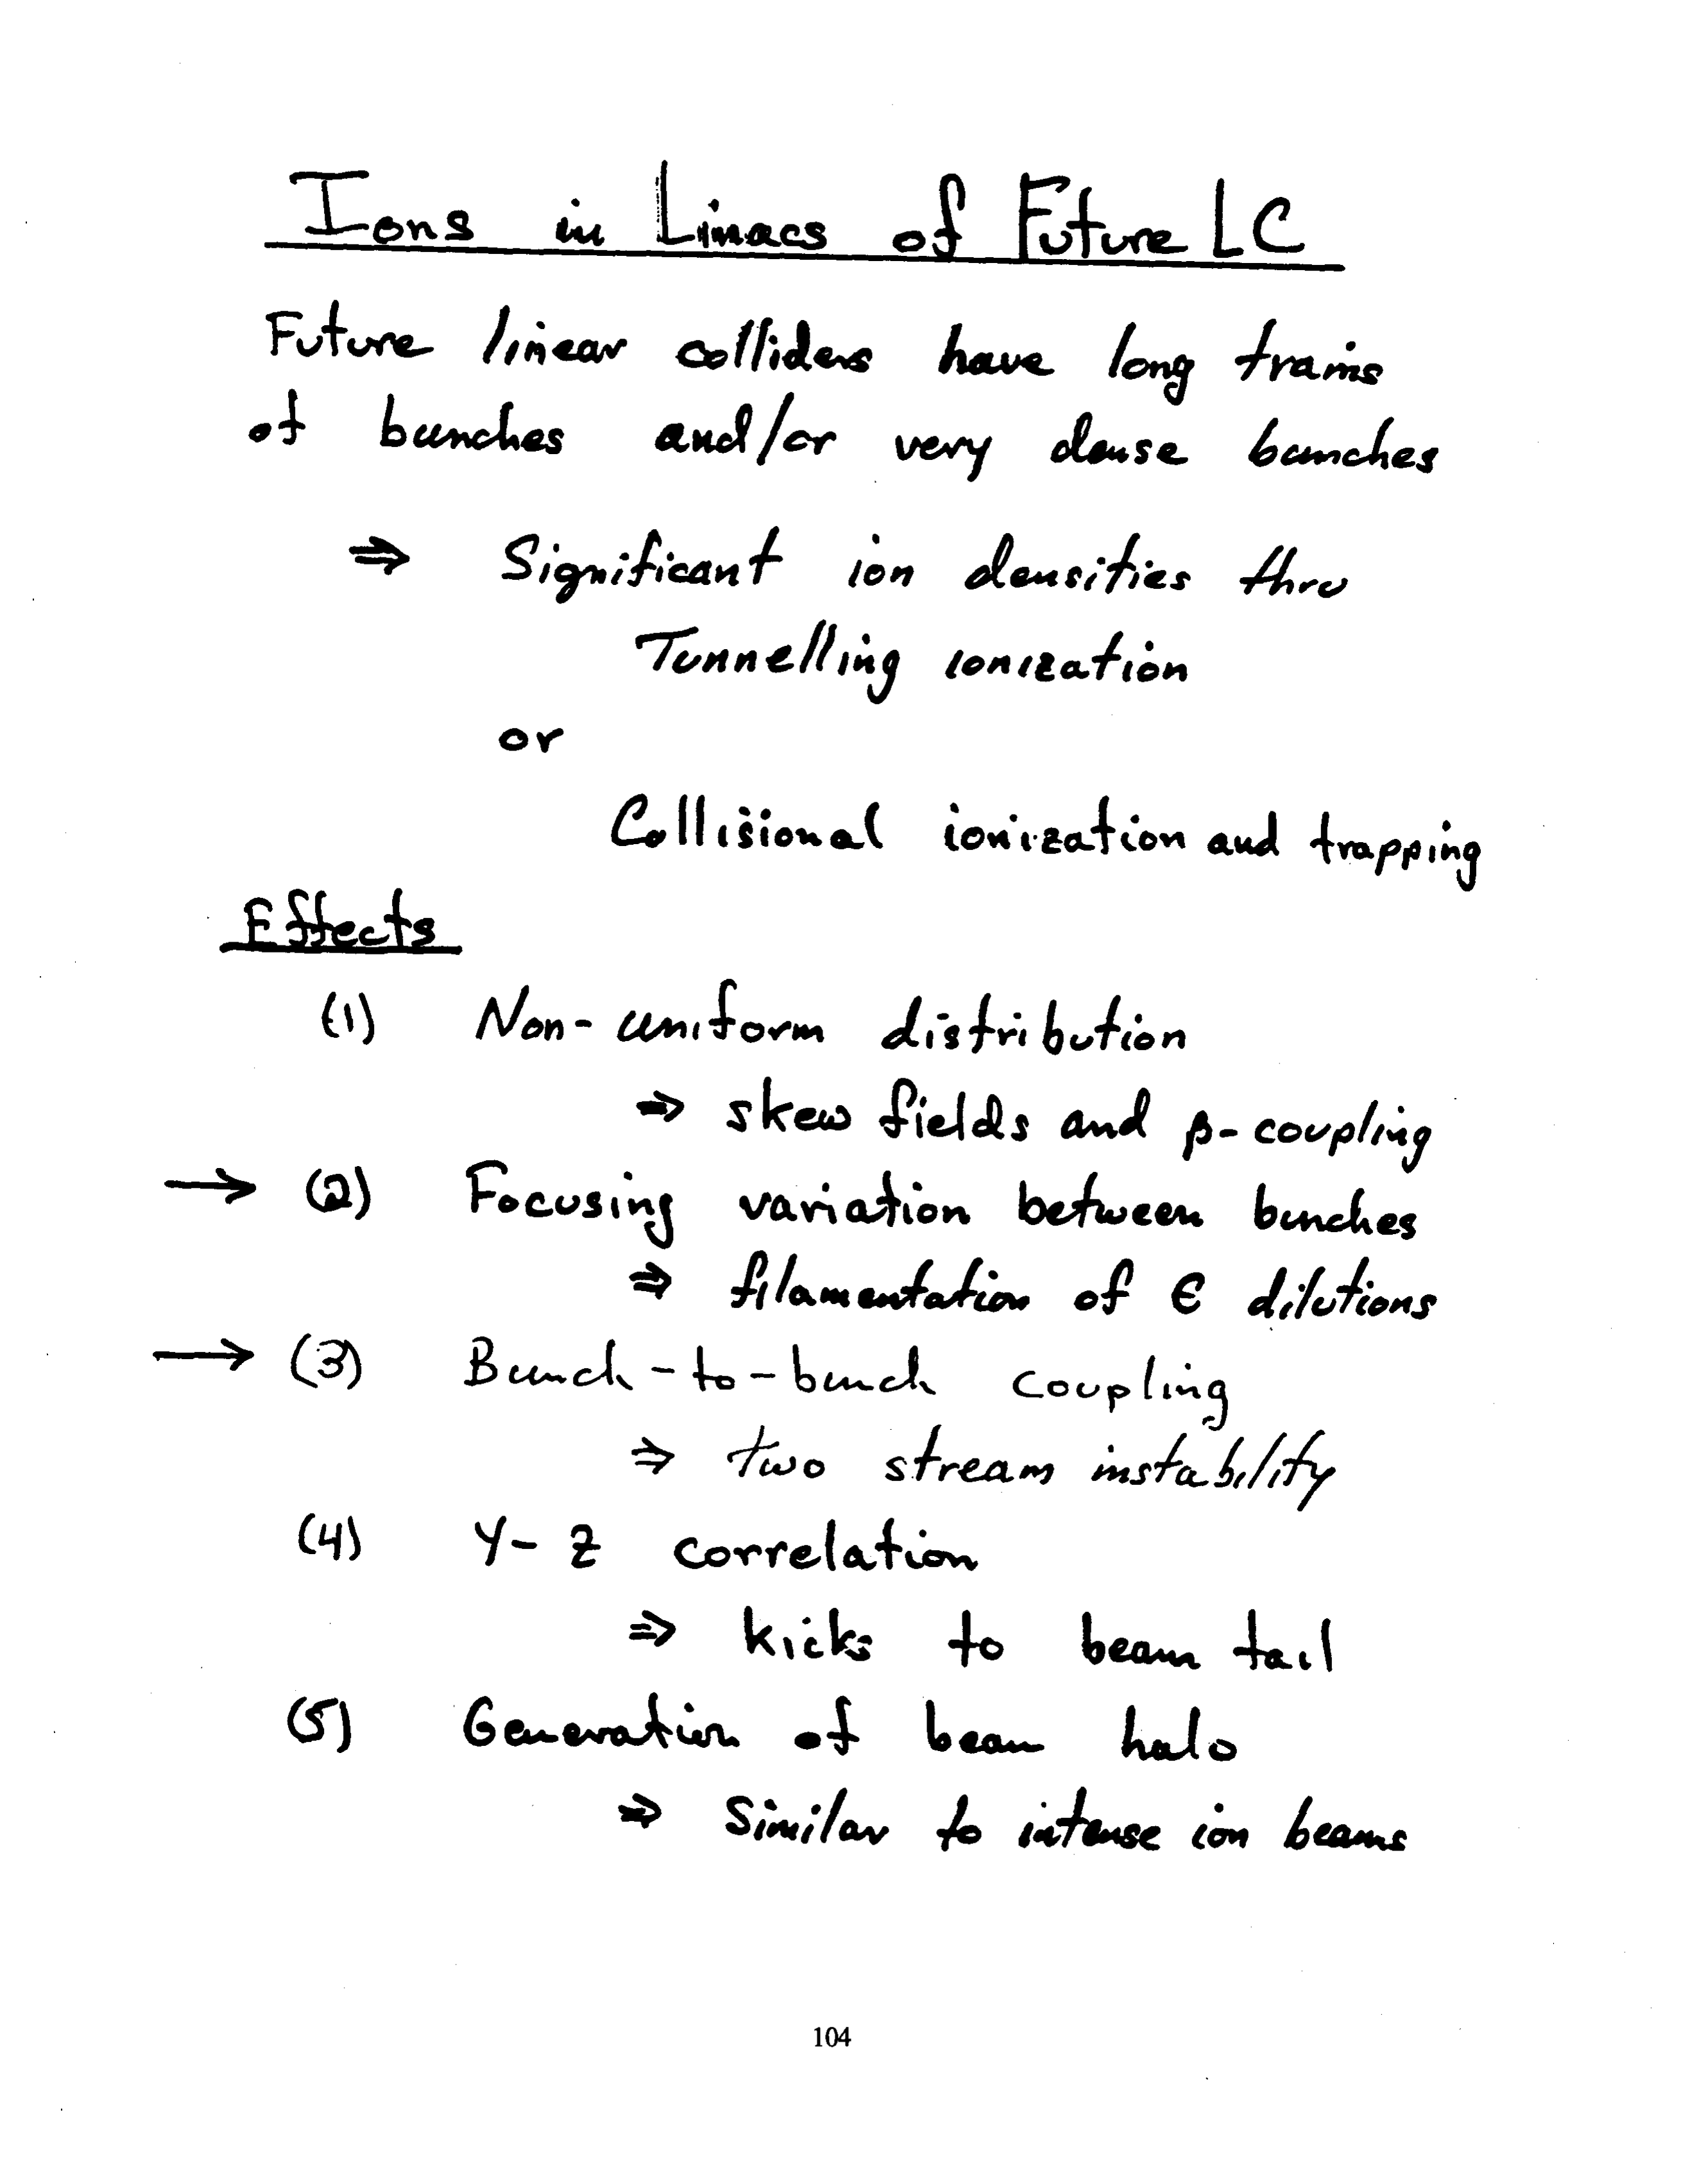 Ions in Linacs of Future LC
Future linear colliders have long trains
of bunches and/or very dense bunches
⇒ Significant ion densities thru
Tunnelling ionization
or
Collisional ionization and trapping
Effects
(1) Non-uniform distribution
⇒ skew fields and β-coupling
→ (2) Focusing variation between bunches
⇒ filamentation of ϵ dilutions
→ (3) Bunch-to-bunch coupling
⇒ two stream instability
(4) Y-Z correlation
⇒ kicks to beam tail
(5) Generation of beam halo
⇒ Similar to intense ion beams
104